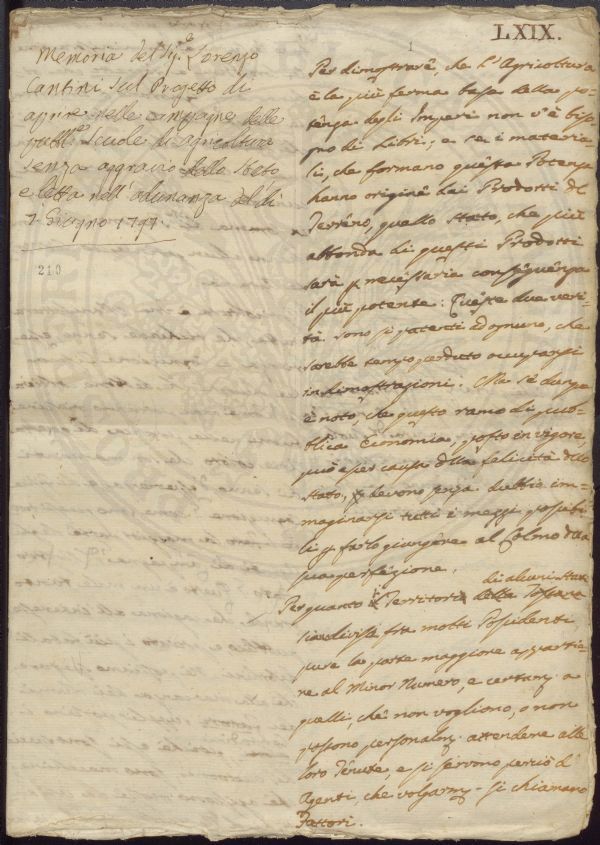 LXIX.
1
Memoria del Sig.e Lorenzo
Cantini sul Progetto di
aprire nelle campagne delle
pubb.e Scuole di agricoltura
senza aggravio dello Stato
e letta nell'adunanza del dì
7. Giugno 1797.
210
Per dimostrare, che l'Agricoltura
è la più ferma base della po-
tenza degli Imperi non v'è biso-
gno di Libri; e se i materia-
li, che formano questa Potenza
hanno origine dai Prodotti del
Terreno, quello Stato, che più
abbonda di questi Prodotti
sarà p necessaria conseguenza
il più potente: Queste due veri-
tà sono sì patenti ad ognuno, che
sarebbe tempo perduto occuparsi
in dimostrazioni. Ma se dunque
è noto, che questo ramo di pub-
blica economia, posto in vigore,
può esser causa della felicità dello
Stato, si devono senza dubbio im-
maginarsi tutti i mezzi possibi-
li p farlo giungere al Colmo della
sua perfezione.
di alcuni Stati
Per quanto i Territori della
sian divisi fra molti Possidenti
pure la parte maggiore appartie-
ne al Minor Numero, e
quelli, che non vogliono, o non
possono personalm. attendere alle
loro Tenute, e si servono perciò d'
Agenti, che volgarm. si chiamano
Fattori.